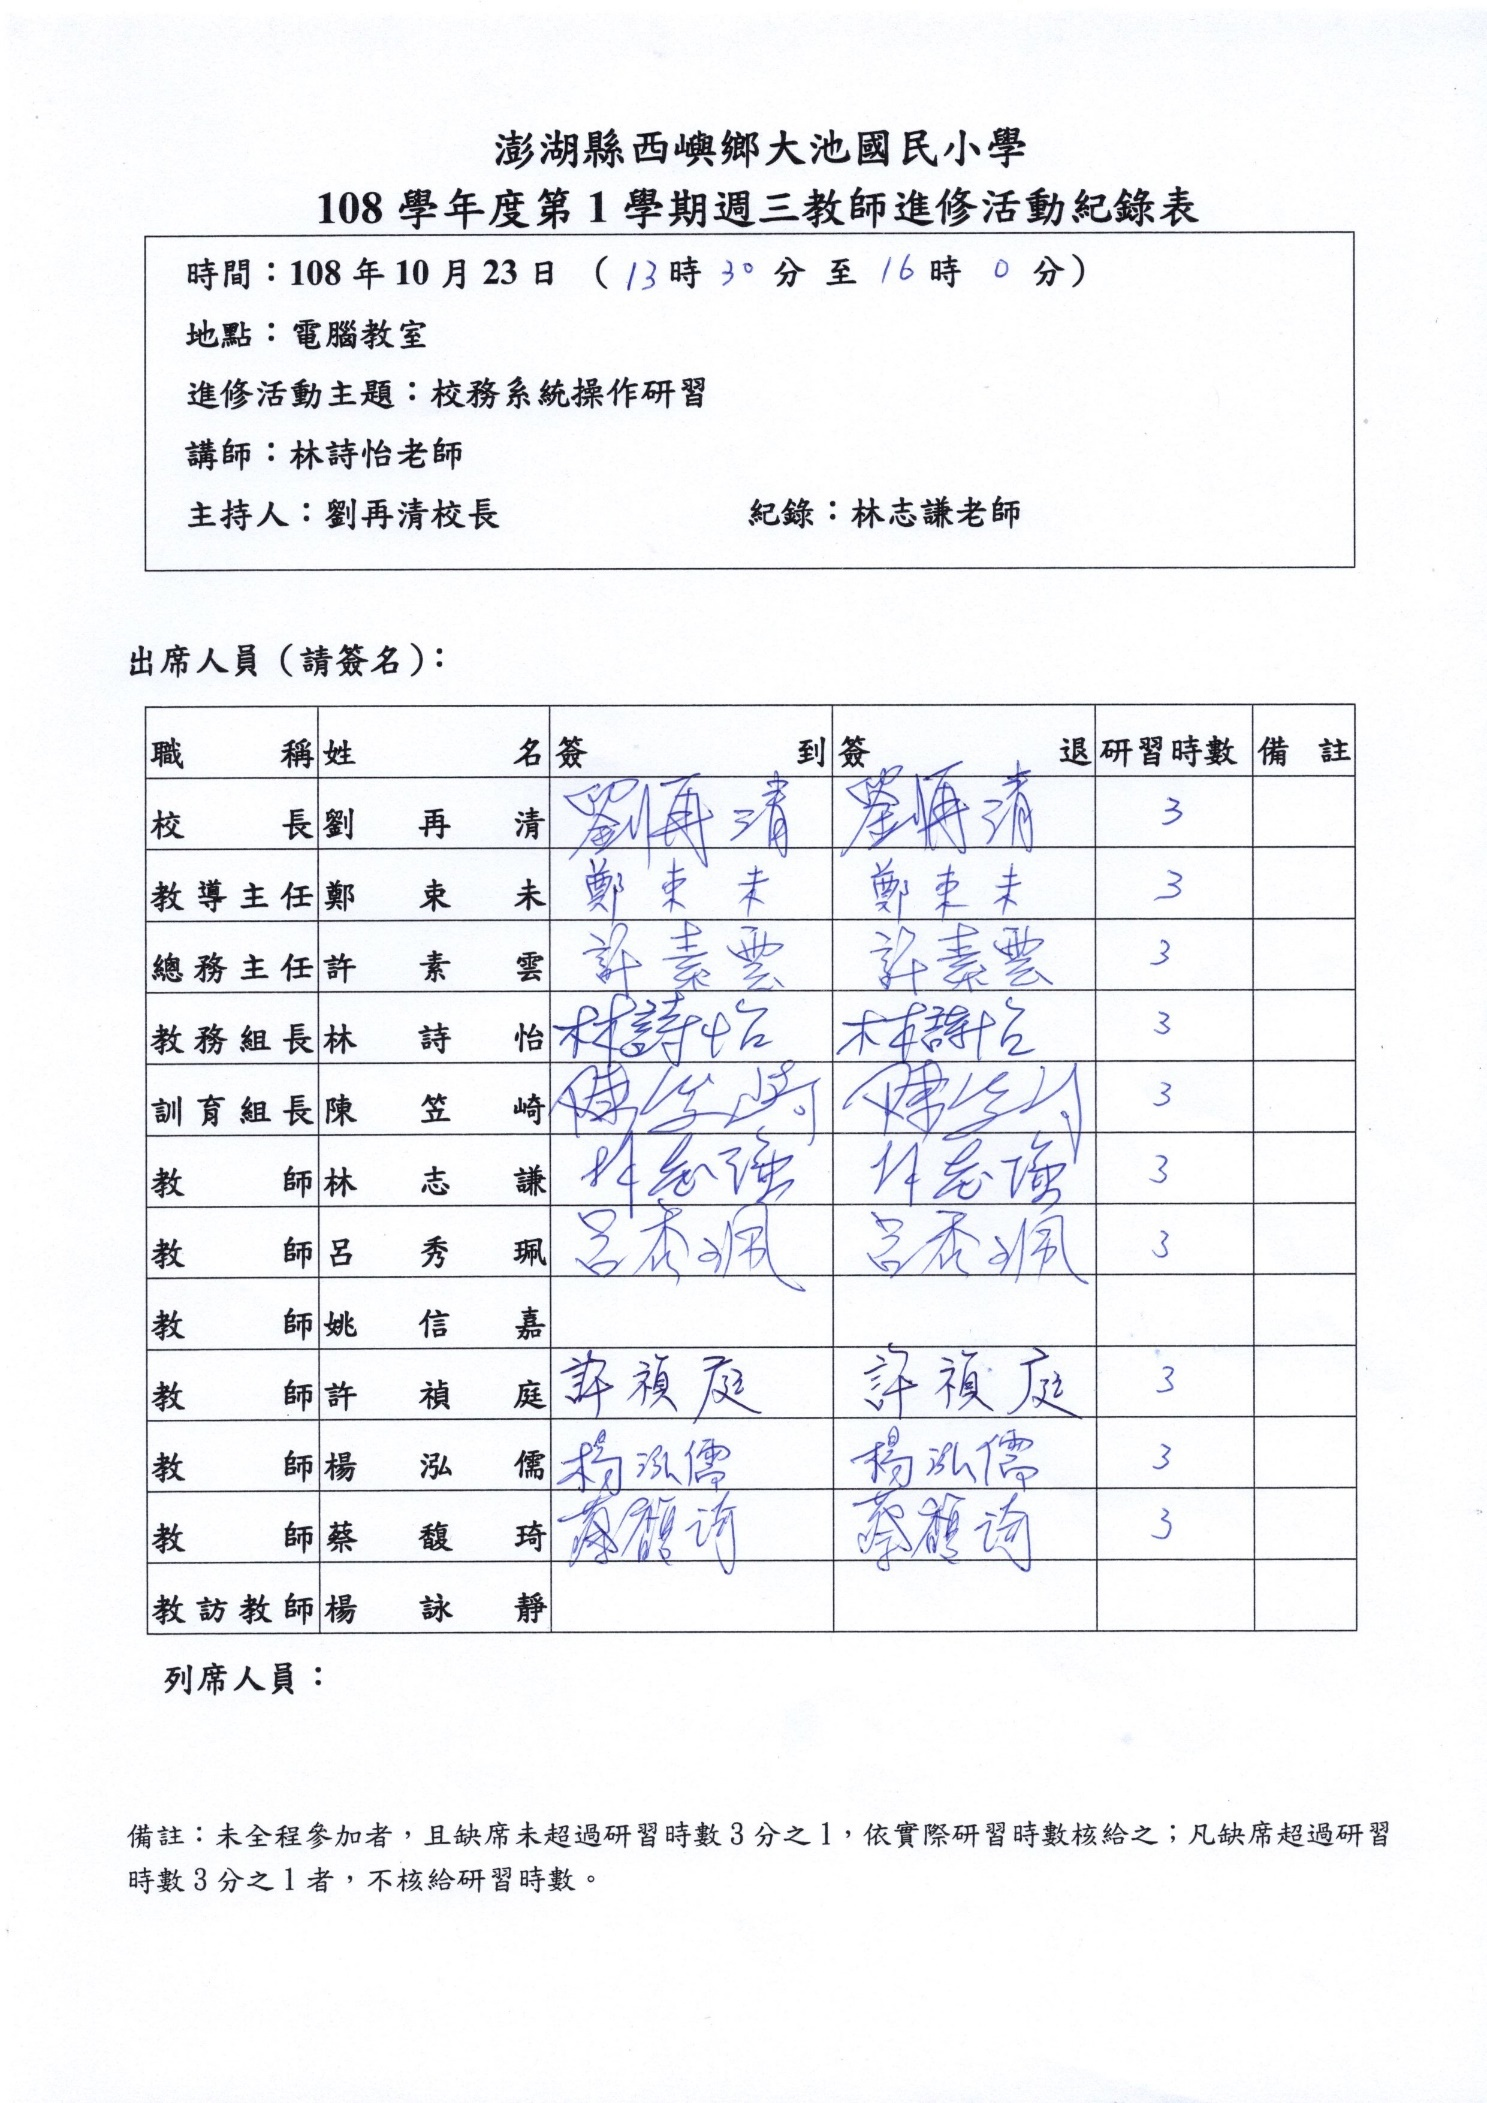 澎湖縣西嶼鄉大池國民小學
108 學年度第 1 學期週三教師進修活動紀錄表
時間：108 年 10 月 23 日 （13時 30 分 至 16 時 0 分）
地點：電腦教室
進修活動主題：校務系統操作研習
講師：林詩怡老師
主持人：劉再清校長 紀錄：林志謙老師
出席人員（請簽名）：
職稱 姓名 簽到 簽退 研習時數 備註
校長 劉再清 劉再清 劉再清 3
教導主任 鄭束未 鄭束未 鄭束未 3
總務主任 許素雲 許素雲 許素雲 3
教務組長 林詩怡 林詩怡 林詩怡 3
訓育組長 陳笠崎 陳笠崎 陳笠崎 3
教師 林志謙 林志謙 林志謙 3
教師 呂秀珮 呂秀珮 呂秀珮 3
教師 姚信嘉
教師 許禎庭 許禎庭 許禎庭 3
教師 楊泓儒 楊泓儒 楊泓儒 3
教師 蔡馥琦 蔡馥琦 蔡馥琦 3
教訪教師 楊詠靜
列席人員：
備註：未全程參加者，且缺席未超過研習時數 3 分之 1，依實際研習時數核給之；凡缺席超過研習
時數 3 分之 1 者，不核給研習時數。